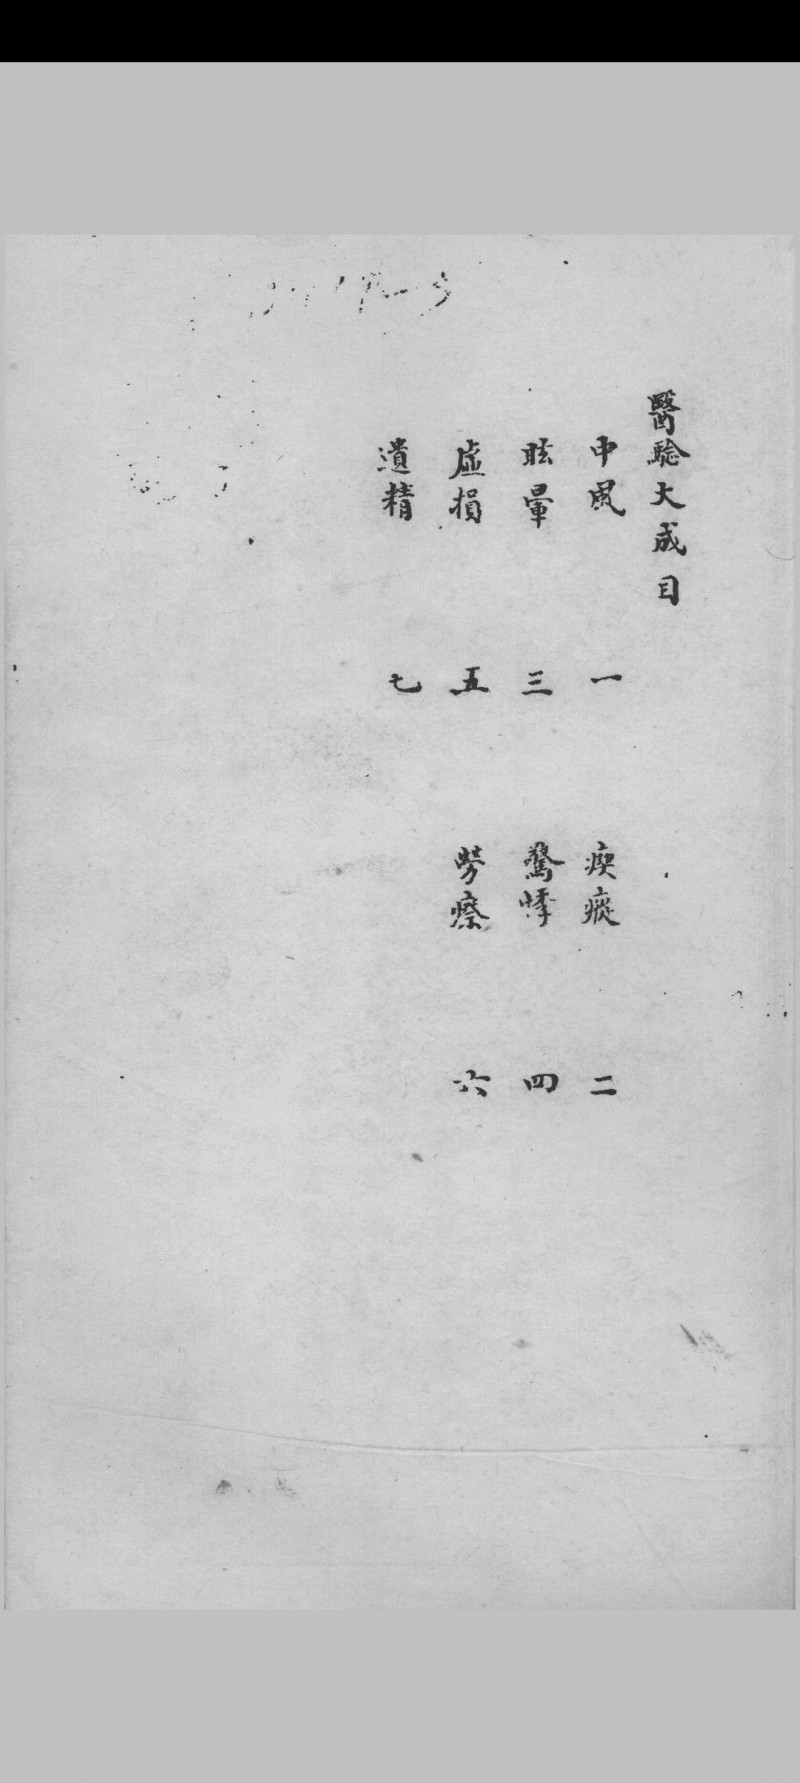 醫騐大成目
中風 一 瘈瘲 二
眩暈 三 驚悸 四
虛損 五 勞瘵 六
遺精 七